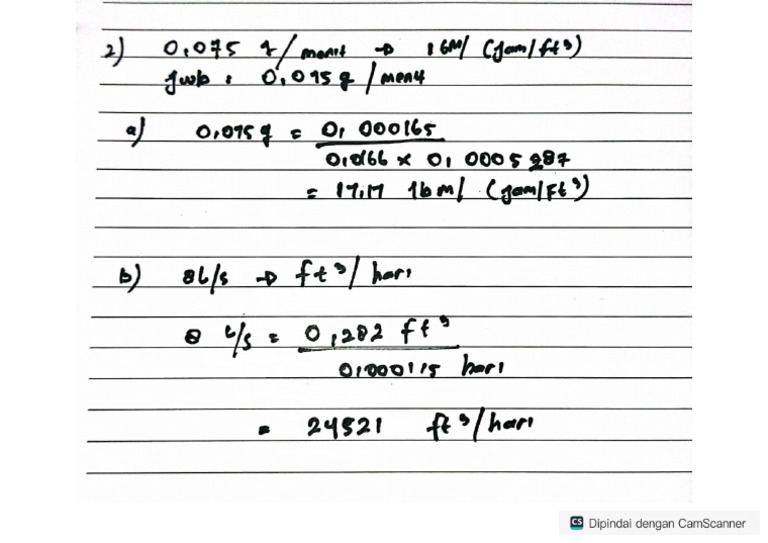 2) 0,075 g/menit → lbm/(jam/ft³)
Jwb : 0,075 g/menit
a) 0,075 g = 0,000165
0,0166 × 0,0005287
= 17,17 lbm/ (jam/ft³)
b) 8L/s → ft³/hari
8 L/s = 0,282 ft³
0,0000115 hari
= 24521 ft³/hari
CS Dipindai dengan CamScanner